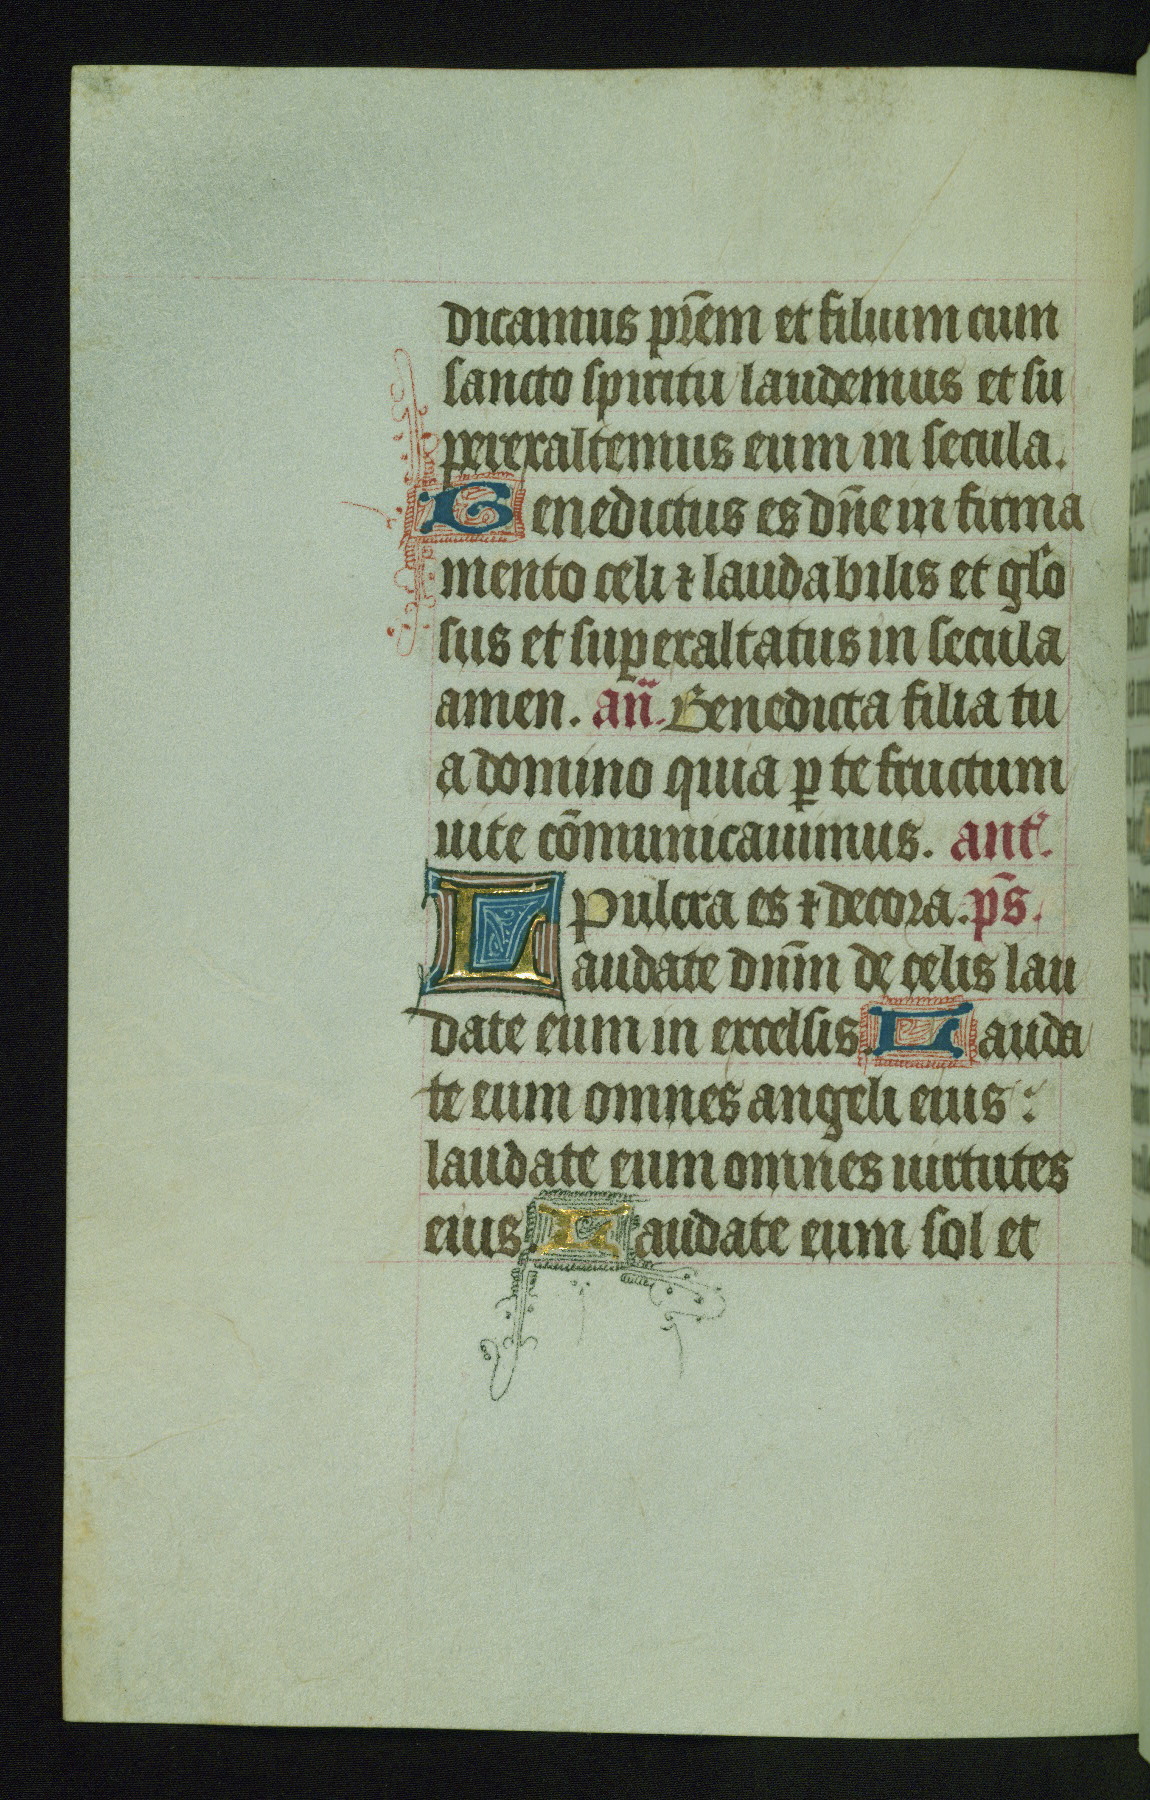 dicamus pr̄em et filium cum
sancto spiritu laudemus et su
perexaltemus eum in secula.
Benedictus es dn̄e in firma
mento celi ⁊ laudabilis et glo
sus et superaltatus in secula
amen. an̄. Benedicta filia tu
a domino quia ꝑ te fructum
uite cōmunicauimus. ant.
Pulcra es ⁊ decora. ps̄.
Laudate dn̄m de celis lau
date eum in excelsis. Lauda
te eum omnes angeli eius:
laudate eum omnes uirtutes
eius. Laudate eum sol et